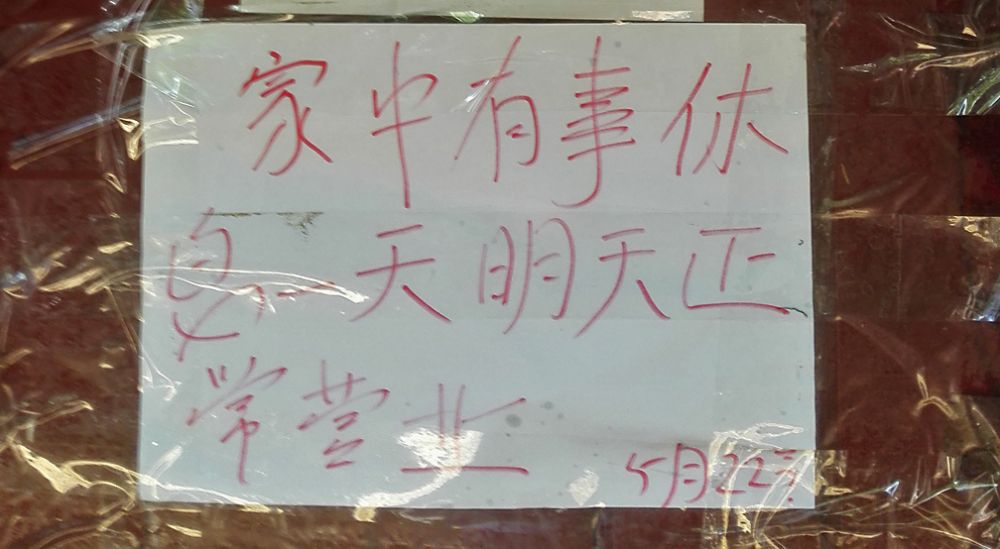 家中有事休
息一天明天正
常营业
5月22号